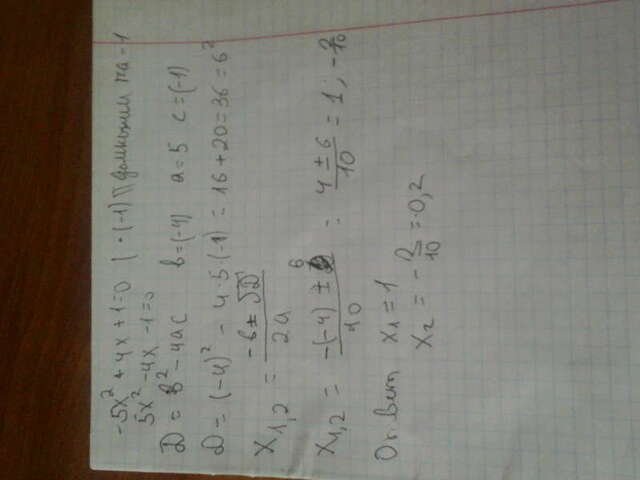 -5x² + 4x + 1 = 0 | · (-1) домножим на -1
5x² - 4x - 1 = 0
D = b² - 4ac b = (-4) a = 5 c = (-1)
D = (-4)² - 4·5·(-1) = 16 + 20 = 36 = 6²
x₁,₂ = (-b ± √D) / 2a
x₁,₂ = (-(-4) ± 6) / 10 = (4 ± 6) / 10 = 1 ; -2/10
Ответ x₁ = 1
x₂ = -2/10 = -0,2